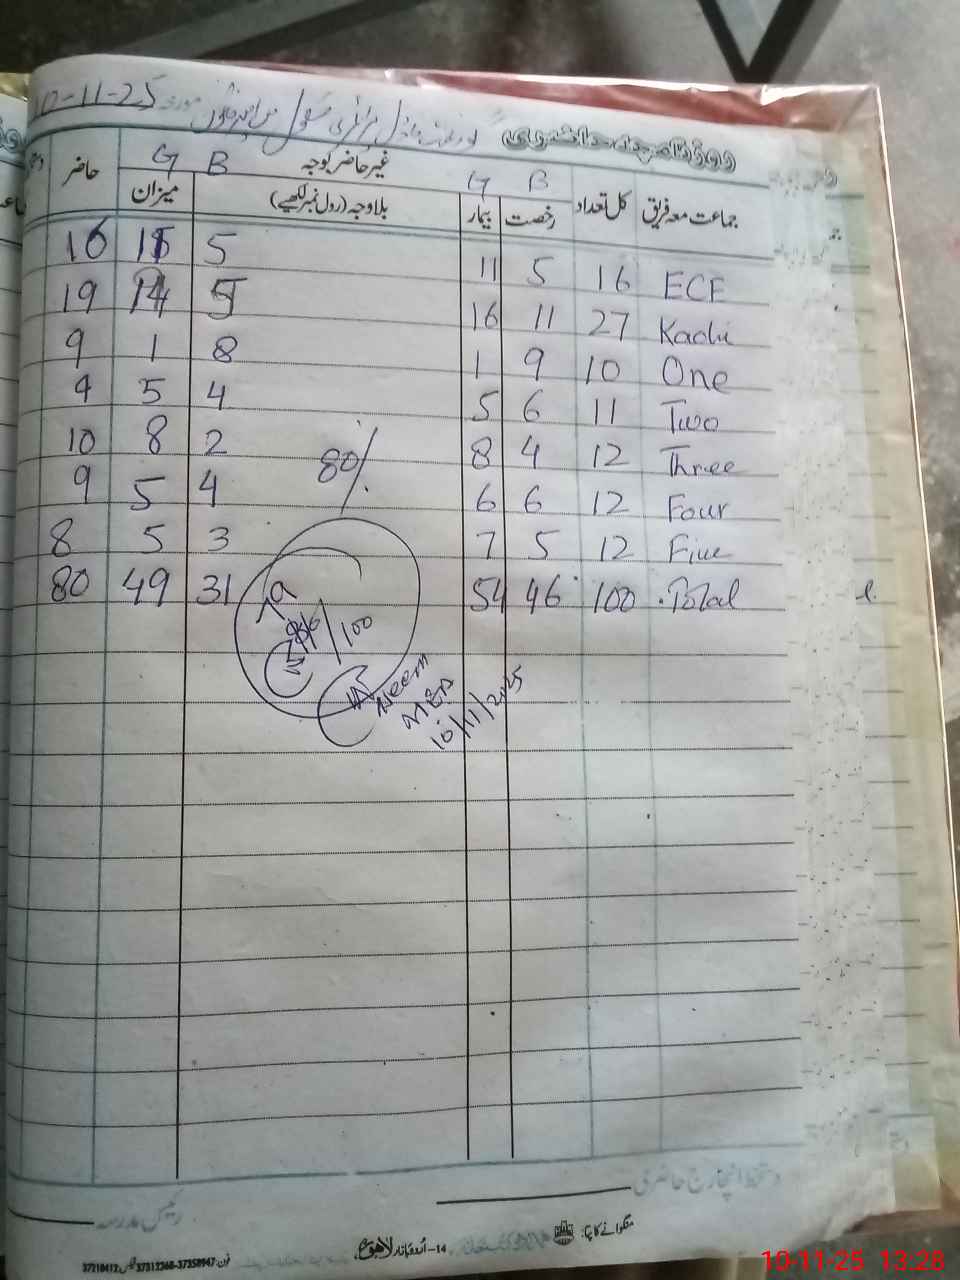 روزنامچہ حاضری
مورخہ 10-11-25
غیر حاضر بوجہ
G B
G B
جماعت معہ فریق کل تعداد رخصت بیمار بلاوجہ (رول نمبر لکھیے) میزان حاضر
ECE 16 5 11 5 16
Kachi 27 11 16 5 14 19
One 10 9 1 8 1 9
Two 11 6 5 4 5 9
Three 12 4 8 2 8 10
Four 12 6 6 4 5 9
Five 12 5 7 3 5 8
Total 100 46 54 31 49 80
80%
/100
Neem
MEA
10/11/2025
دستخط انچارج حاضری
رئیس مدرسہ
منگوانے کا پتہ:
14-اُردو بازار لاہور
10-11-25 13:28